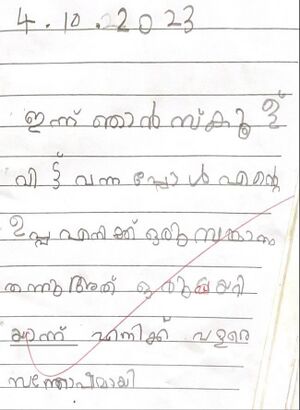 4.10.2023
ഇന്ന് ഞാൻ സ്കൂള്
വിട്ട് വന്നപ്പോൾ എന്റെ
ഉപ്പ എനിക്ക് ഒരു സമ്മാനം
തന്നു അത് ഒരു
എനിക്ക് വളരെ
സന്തോഷമായി